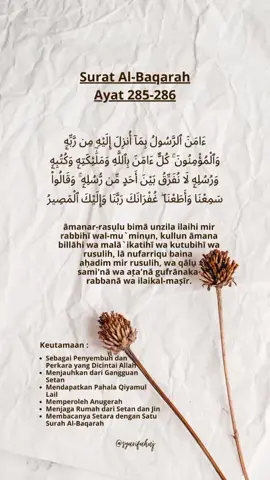 Surat Al-Baqarah
Ayat 285-286
ءَامَنَ ٱلرَّسُولُ بِمَآ أُنزِلَ إِلَيْهِ مِن رَّبِّهِۦ
وَٱلْمُؤْمِنُونَ ۚ كُلٌّ ءَامَنَ بِٱللَّهِ وَمَلَٰٓئِكَتِهِۦ وَكُتُبِهِۦ
وَرُسُلِهِۦ لَا نُفَرِّقُ بَيْنَ أَحَدٍ مِّن رُّسُلِهِۦ ۚ وَقَالُوا۟
سَمِعْنَا وَأَطَعْنَا ۖ غُفْرَانَكَ رَبَّنَا وَإِلَيْكَ ٱلْمَصِيرُ
āmanar-rasụlu bimā unzila ilaihi mir
rabbihī wal-mu`minụn, kullun āmana
billāhi wa malā`ikatihī wa kutubihī wa
rusulih, lā nufarriqu baina
aḥadim mir rusulih, wa qālụ
sami'nā wa aṭa'nā gufrānaka
rabbanā wa ilaikal-maṣīr.
Keutamaan :
Sebagai Penyembuh dan
Perkara yang Dicintai Allah
Menjauhkan dari Gangguan
Setan
Mendapatkan Pahala Qiyamul
Lail
Memperoleh Anugerah
Menjaga Rumah dari Setan dan Jin
Membacanya Setara dengan Satu
Surah Al-Baqarah